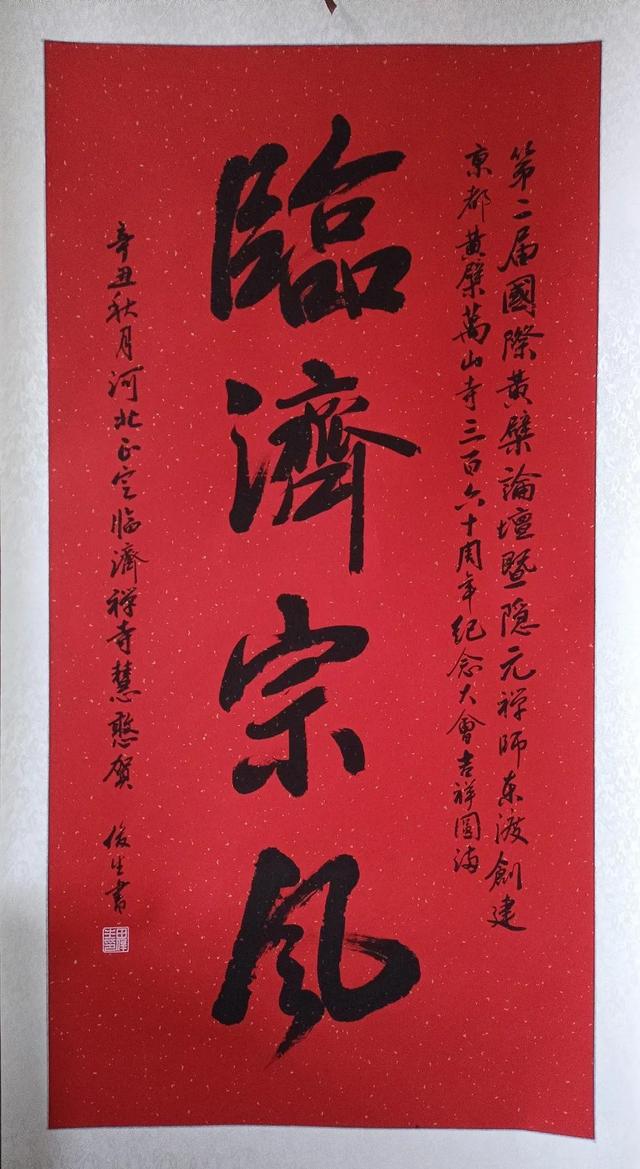 第二届國際黄檗論壇暨隐元禅师东渡創建
京都黄檗萬山寺三百六十周年纪念大會吉祥圆满
臨濟宗风
辛丑秋月河北正定临濟禅寺慧憨贺
俊生書